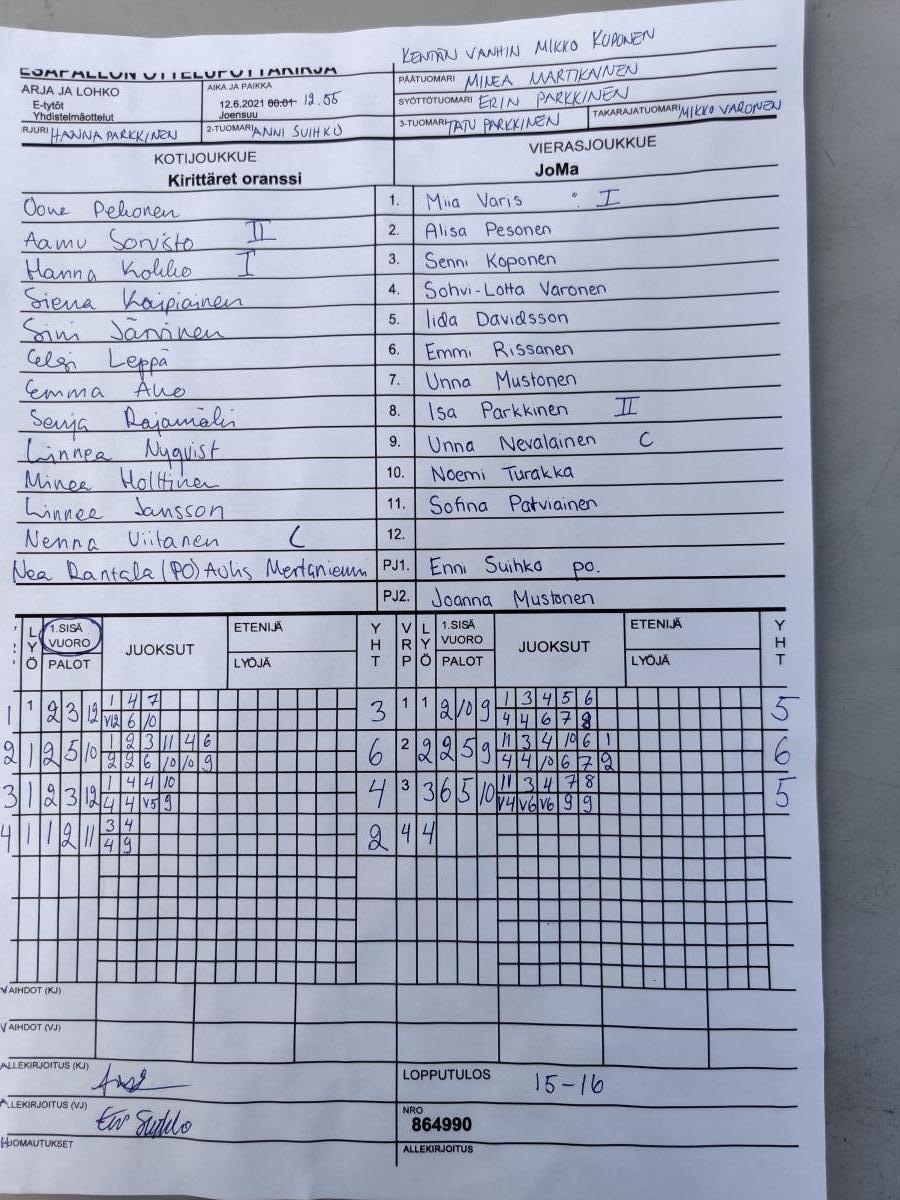 KENTÄN VANHIN MIKKO KUPONEN
ESÄPALLON OTTELUPÖYTÄKIRJA
ARJA JA LOHKO
E-tytöt
Yhdistelmäottelut
AIKA JA PAIKKA
12.6.2021 00:01 12.55
Joensuu
PÄÄTUOMARI MINEA MARTIKAINEN
SYÖTTÖTUOMARI ERIN PARKKINEN
RJURI HANNA PARKKINEN 2-TUOMARI ANNI SUIHKO 3-TUOMARI TATU PARKKINEN TAKARAJATUOMARI MIKKO VARONEN
KOTIJOUKKUE VIERASJOUKKUE
Kirittäret oranssi JoMa
Oona Pekonen 1. Miia Varis I
Aamu Sorvisto II 2. Alisa Pesonen
Hanna Kokko I 3. Senni Koponen
Siena Kaipiainen 4. Sohvi-Lotta Varonen
Sini Järvinen 5. Iida Davidsson
Leppä 6. Emmi Rissanen
Emma Aho 7. Unna Mustonen
Senja Rajamäki 8. Isa Parkkinen II
Linnea Nyqvist 9. Unna Nevalainen C
Minea Holttinen 10. Noemi Turakka
Linnea Jansson 11. Sofina Patviainen
Nenna Viitanen C 12.
Nea Rantala (PO) PJ1. Enni Suihko po.
PJ2. Joanna Mustonen
LYÖ 1.SISÄ VUORO PALOT JUOKSUT ETENIJÄ LYÖJÄ YHT VRP LYÖ 1.SISÄ VUORO PALOT JUOKSUT ETENIJÄ LYÖJÄ YHT
1 1 2 3 12 1 4 7 3 1 1 2 10 9 1 3 4 5 6 5
V12 6 10 4 4 6 7 8
2 1 2 5 10 1 2 3 11 4 6 6 2 2 2 5 9 11 3 4 10 6 1 6
2 2 6 10 10 9 4 4 10 6 7 2
3 1 2 3 12 1 4 4 10 4 3 3 6 5 10 11 3 4 7 8 5
4 4 V5 9 V4 V6 V6 9 9
4 1 1 2 11 3 4 2 4 4
4 9
VAIHDOT (KJ)
VAIHDOT (VJ)
ALLEKIRJOITUS (KJ) LOPPUTULOS 15-16
ALLEKIRJOITUS (VJ) NRO
864990
HUOMAUTUKSET ALLEKIRJOITUS